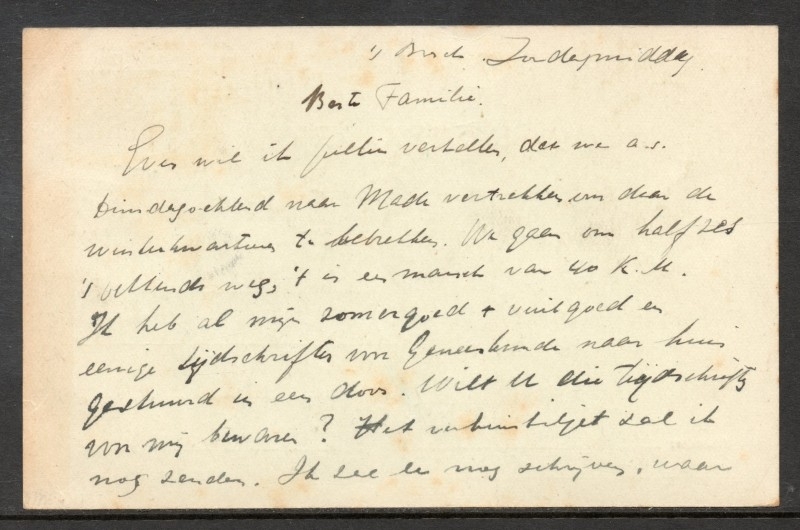 's Bosch. Zondagmiddag.
Beste Familie.
Even wil ik jullie vertellen, dat we a.s.
Dinsdagochtend naar Made vertrekken om daar de
winterkwartieren te betrekken. We gaan om half zes
's ochtends weg, 't is een marsch van 40 K.M.
Ik heb al mijn zomergoed + vuilgoed en
eenige tijdschriften voor Geneeskunde naar huis
gestuurd in een doos. Wilt U die tijdschriften
voor mij bewaren? Het zal ik
nog zenden. Ik zal er nog schrijven, waar